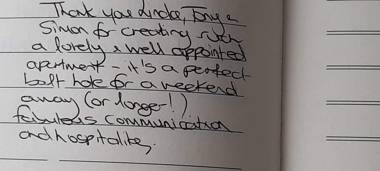 Thank you Linda, Tony &
Simon for creating such
a lovely & well appointed
apartment - it's a perfect
bolt hole for a weekend
away (or longer!)
fabulous communication
and hospitality.